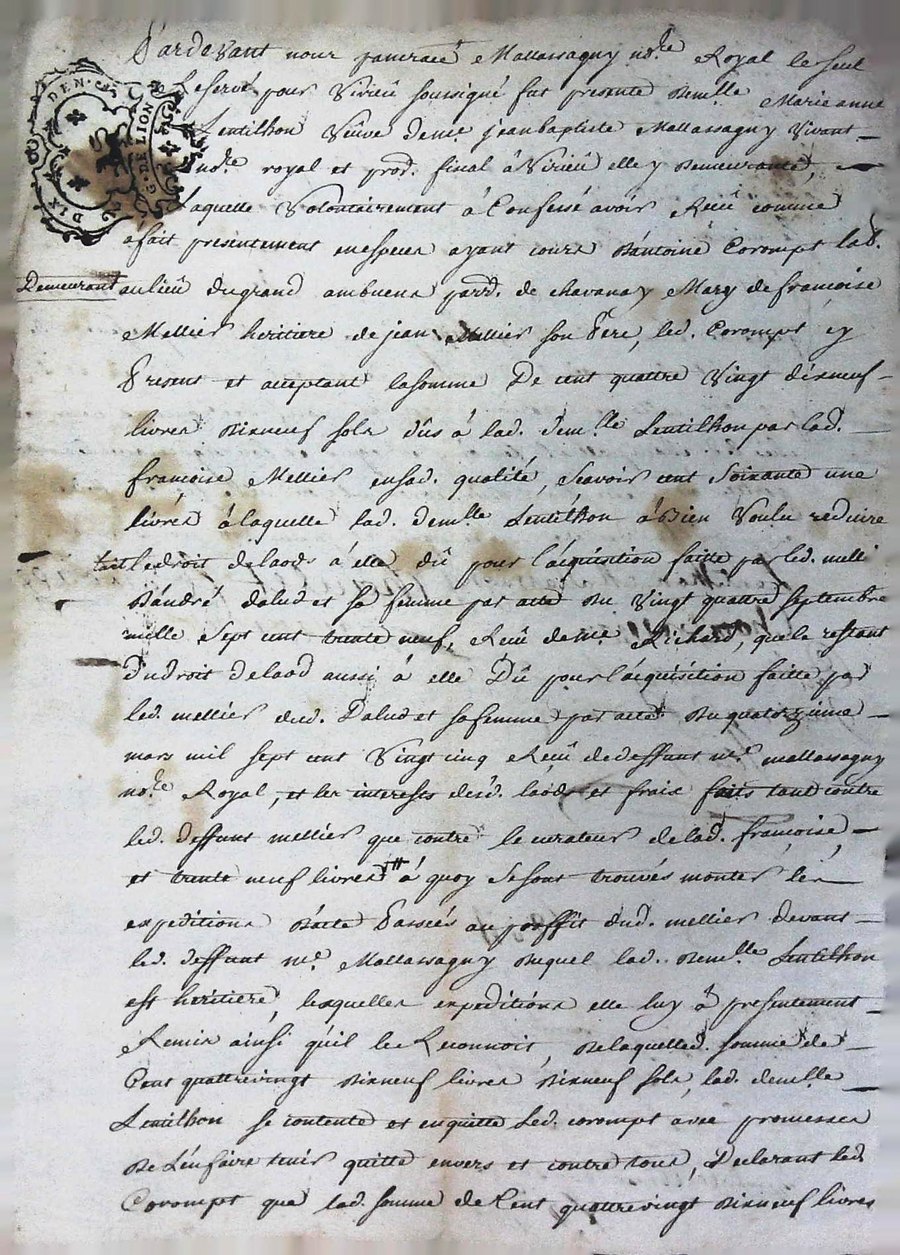 DIX DEN.
G. DE LION
Pardevant nous pancrace Mallassagny no.re Royal le seul
Reservé pour Virieu soussigné fut presente Demlle Marieanne
Lentilhon Veuve de me. jeanbaptiste Mallassagny Vivant
no.re royal et prod. fiscal à Virieu elle y Demeurante,
Laquelle Volontairement à Confessé avoir Reçû comme
a fait presentement en especes ayant cours D'antoine Corompt lad.
Demeurant au lieu du grand ambuens parr. de chavanay Mary de françoise
Mellier heritiere de jean Mellier son Pere, led. Corompt y
Present et acceptant la somme De cent quattre Vingt dixneuf
livres Dixneuf sols dûs à lad. demlle Lentilhon par lad.
françoise Mellier en sad. qualité, Scavoir cent Soixante une
livres à laquelle lad. demlle Lentilhon à Bien Voulu reduire
tant le droit de laods à elle dû pour l'acquisition faitte par led. mellier
D'andré dalud et sa femme par acte Du Vingt quattre Septembre
mille Sept cent trente neuf, Reçû de me. Richard, que le restant
du droit de laod aussi à elle Dû pour l'acquisition faitte par
led. mellier dud. Dalud et sa femme par acte Du quatorzieme
mars mil sept cent Vingt cinq Reçû de deffunt me. mallassagny
no.re Royal, et les interests desd. laods et frais faits tant contre
led. deffunt mellier que contre le curateur de lad. françoise,
et trente neuf livres à quoy se sont trouvés monter les
expeditions D'acte Passées au proffit dud. mellier devant
led. deffunt me. Mallassagny Duquel lad. Demlle Lentilhon
est heritiere, lesquelles expeditions elle luy à presentement
Remis ainsi qu'il le Reconnoit, De laquelled. somme de
Cent quattrevingt Dixneuf livres Dixneuf sols, lad. demlle
Lentilhon se contente et en quitte Led. corompt avec promesses
De L'en faire tenir quitte envers et contre tous, Declarant led.
Corompt que lad. somme de Cent quattrevingt Dixneuf livres